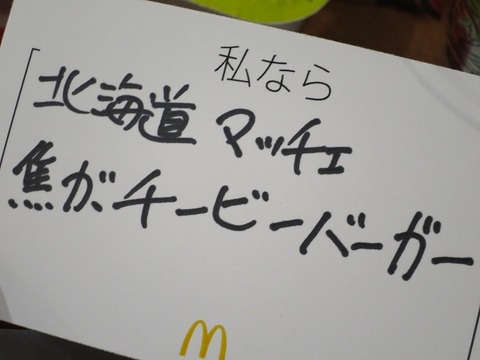 私なら
北海道 マッチェ
焦がチービーバーガー